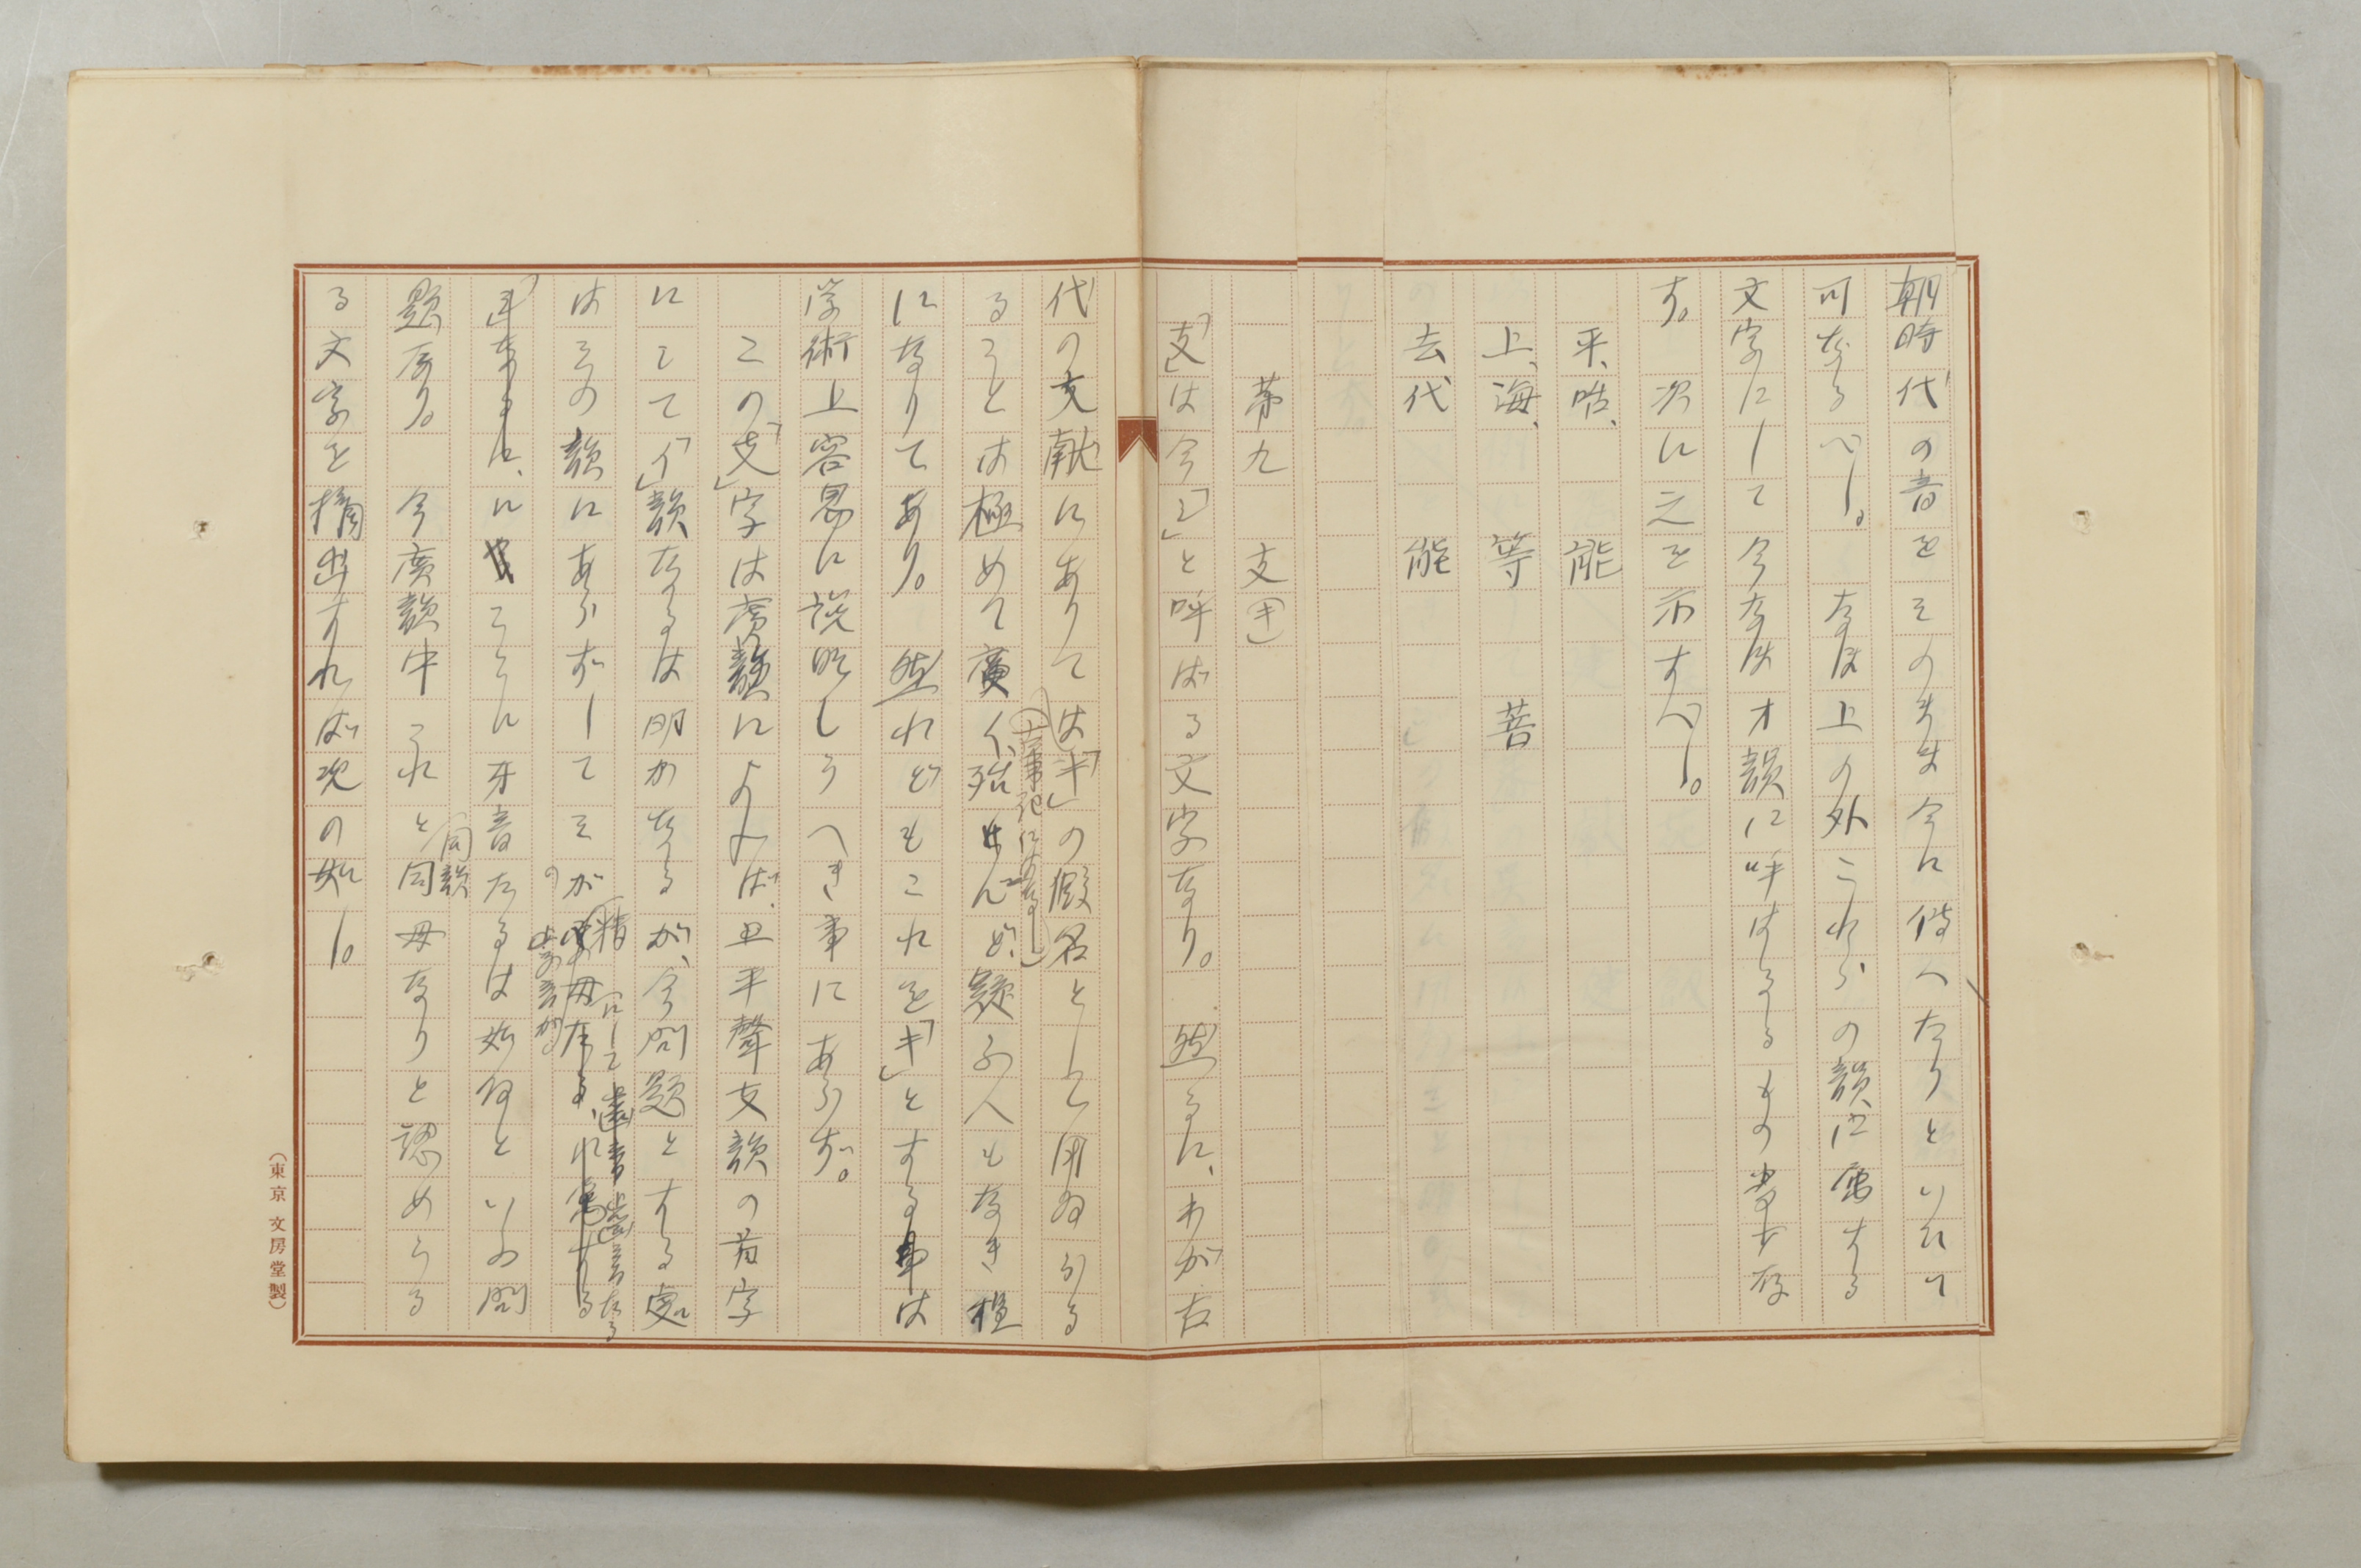 朝時代の音をそのまま今に傳へたりといひて
可なるべし。　なほ上の外これらの韻に属する
文字にして今なほオ韻に呼ばるるもの
す。　次に之を示すべし。
平、咍、　　能
上、海、　　等　　菩
去、代　　能
第九　支(キ)
「支」は今「シ」と呼ばるる文字なり。　然るに、わが古
代の文献にありては(古事記にはなし)「キ」の假名として用ゐらる
ること は極めて廣く、殆ど疑ふ人もなき程
になりてあり。　然れどもこれを「キ」とする事は
学術上容易に説明しうべき事にあらず。
この「支」字は廣韻によれば、上平聲支韻の首字
にして「イ」韻なるは明かなるが、今問題とする處
はその韻にあらずしてそが
ここに牙音たるは如何といふ問
題なり。　今廣韻中これと同韻同母なりと認めらる
る文字を摘出すれば次の如し。
(東京 文房堂製)